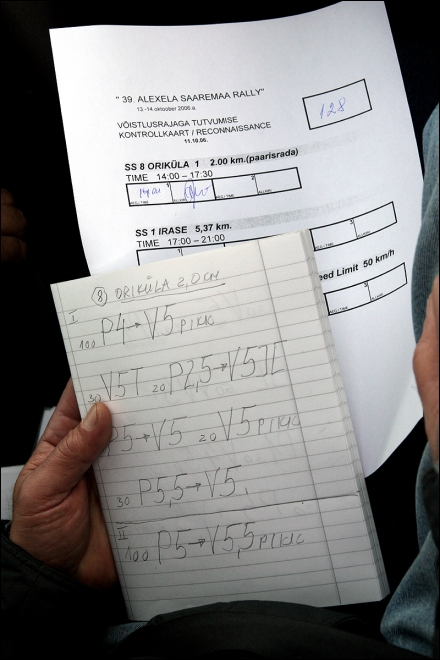 " 39. ALEXELA SAAREMAA RALLY"
13 -14 oktoober 2006.a.
VÕISTLUSRAJAGA TUTVUMISE
KONTROLLKAART / RECONNAISSANCE
11.10.06.
128
SS 8 ORIKÜLA 1 2.00 km.(paarisrada)
TIME 14:00 - 17:30
1
2
SS 1 IRASE 5,37 km.
TIME 17:00 - 21:00
1
3
eed Limit 50 km/h
3
8 ORIKÜLA 2,0 KM
I
100 P4→V5 PIKK
30 V5T 20 P2,5→V5JC
P5→V5 20 V5 PIKK
30 P5,5→V5.
II
100 P5→V5,5 PIKK